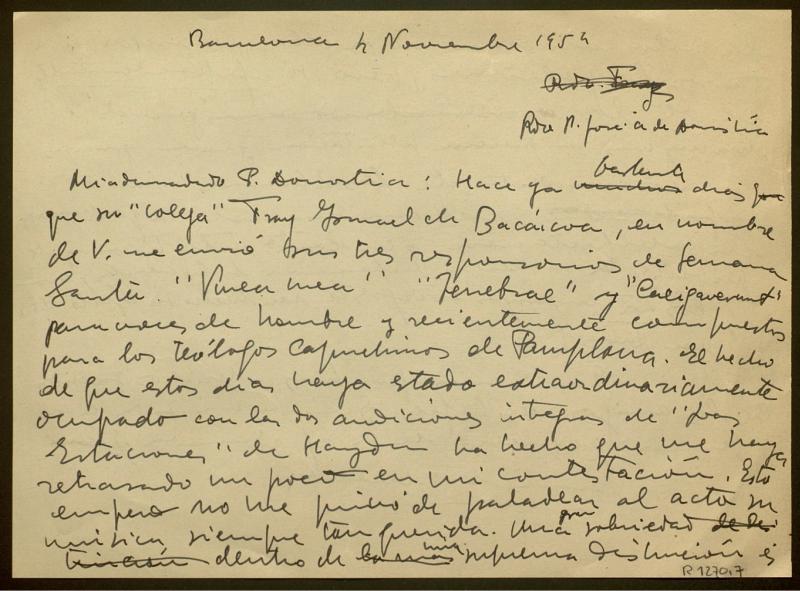 Barcelona 4 Noviembre 1954
Rdo. Fray
Rdo P. José A de Donostia
Mi admirado P. Donostia: Hace ya muchos bastante días que
que su "colega" Fray Ismael de Bacáicoa, en nombre
de V. me envió sus tres responsorios de Semana
Santa. "Vinea mea" "Tenebrae" y "Caligaverunt"
para voces de hombre y recientemente compuestos
para los teólogos Capuchinos de Pamplona. El hecho
de que estos días haya estado extraordinariamente
ocupado con las dos audiciones íntegras de "Las
Estaciones" de Haydn ha hecho que me haya
retrasado un poco en mi contestación. Esto
empero no me privó de paladear al acto su
música siempre tan querida. Una gran sobriedad
dentro de una suprema distinción es
R 12707